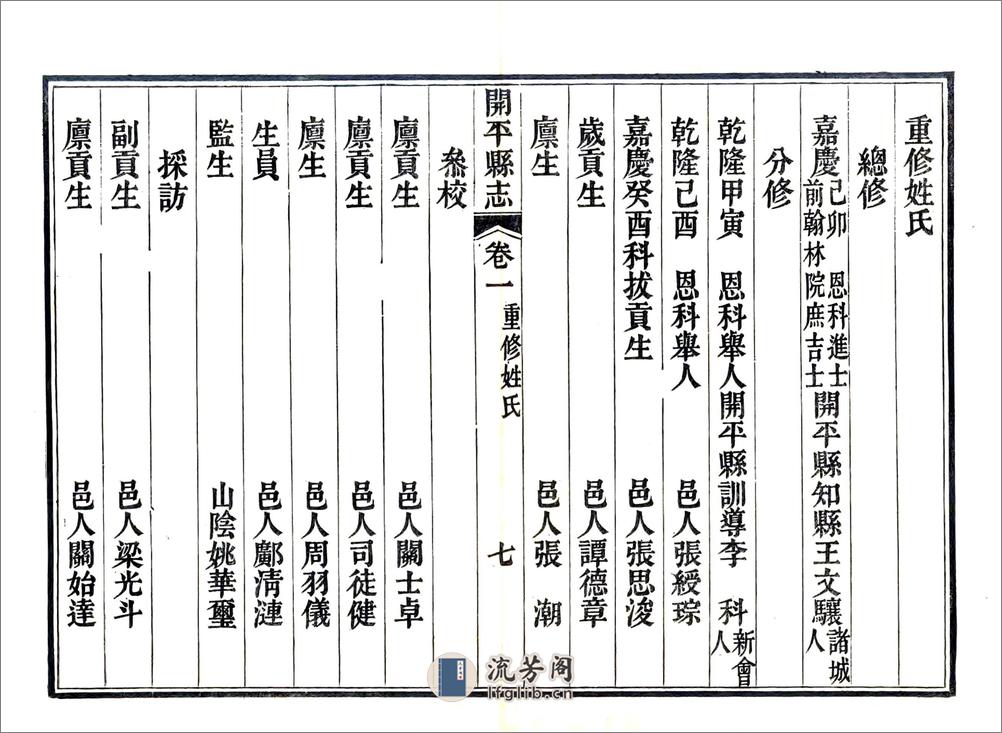 重修姓氏
總修
嘉慶己卯 恩科進士前翰林院庶吉士開平縣知縣王文驤諸城人
分修
乾隆甲寅 恩科舉人開平縣訓導李 科新會人
乾隆己酉 恩科舉人 邑人張綬琮
嘉慶癸酉科拔貢生 邑人張思浚
歲貢生 邑人譚德章
廪生 邑人張 潮
開平縣志 卷一 重修姓氏 七
叅校
廪貢生 邑人關士卓
廪貢生 邑人司徒健
廪生 邑人周羽儀
生員 邑人鄺淸漣
監生 山陰姚華璽
採訪
副貢生 邑人梁光斗
廪貢生 邑人關始達
流芳阁
lfglib.cn